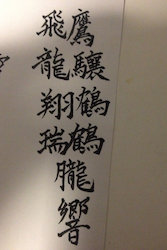 飛鷹
龍驤
翔鶴
瑞鶴
朧
響